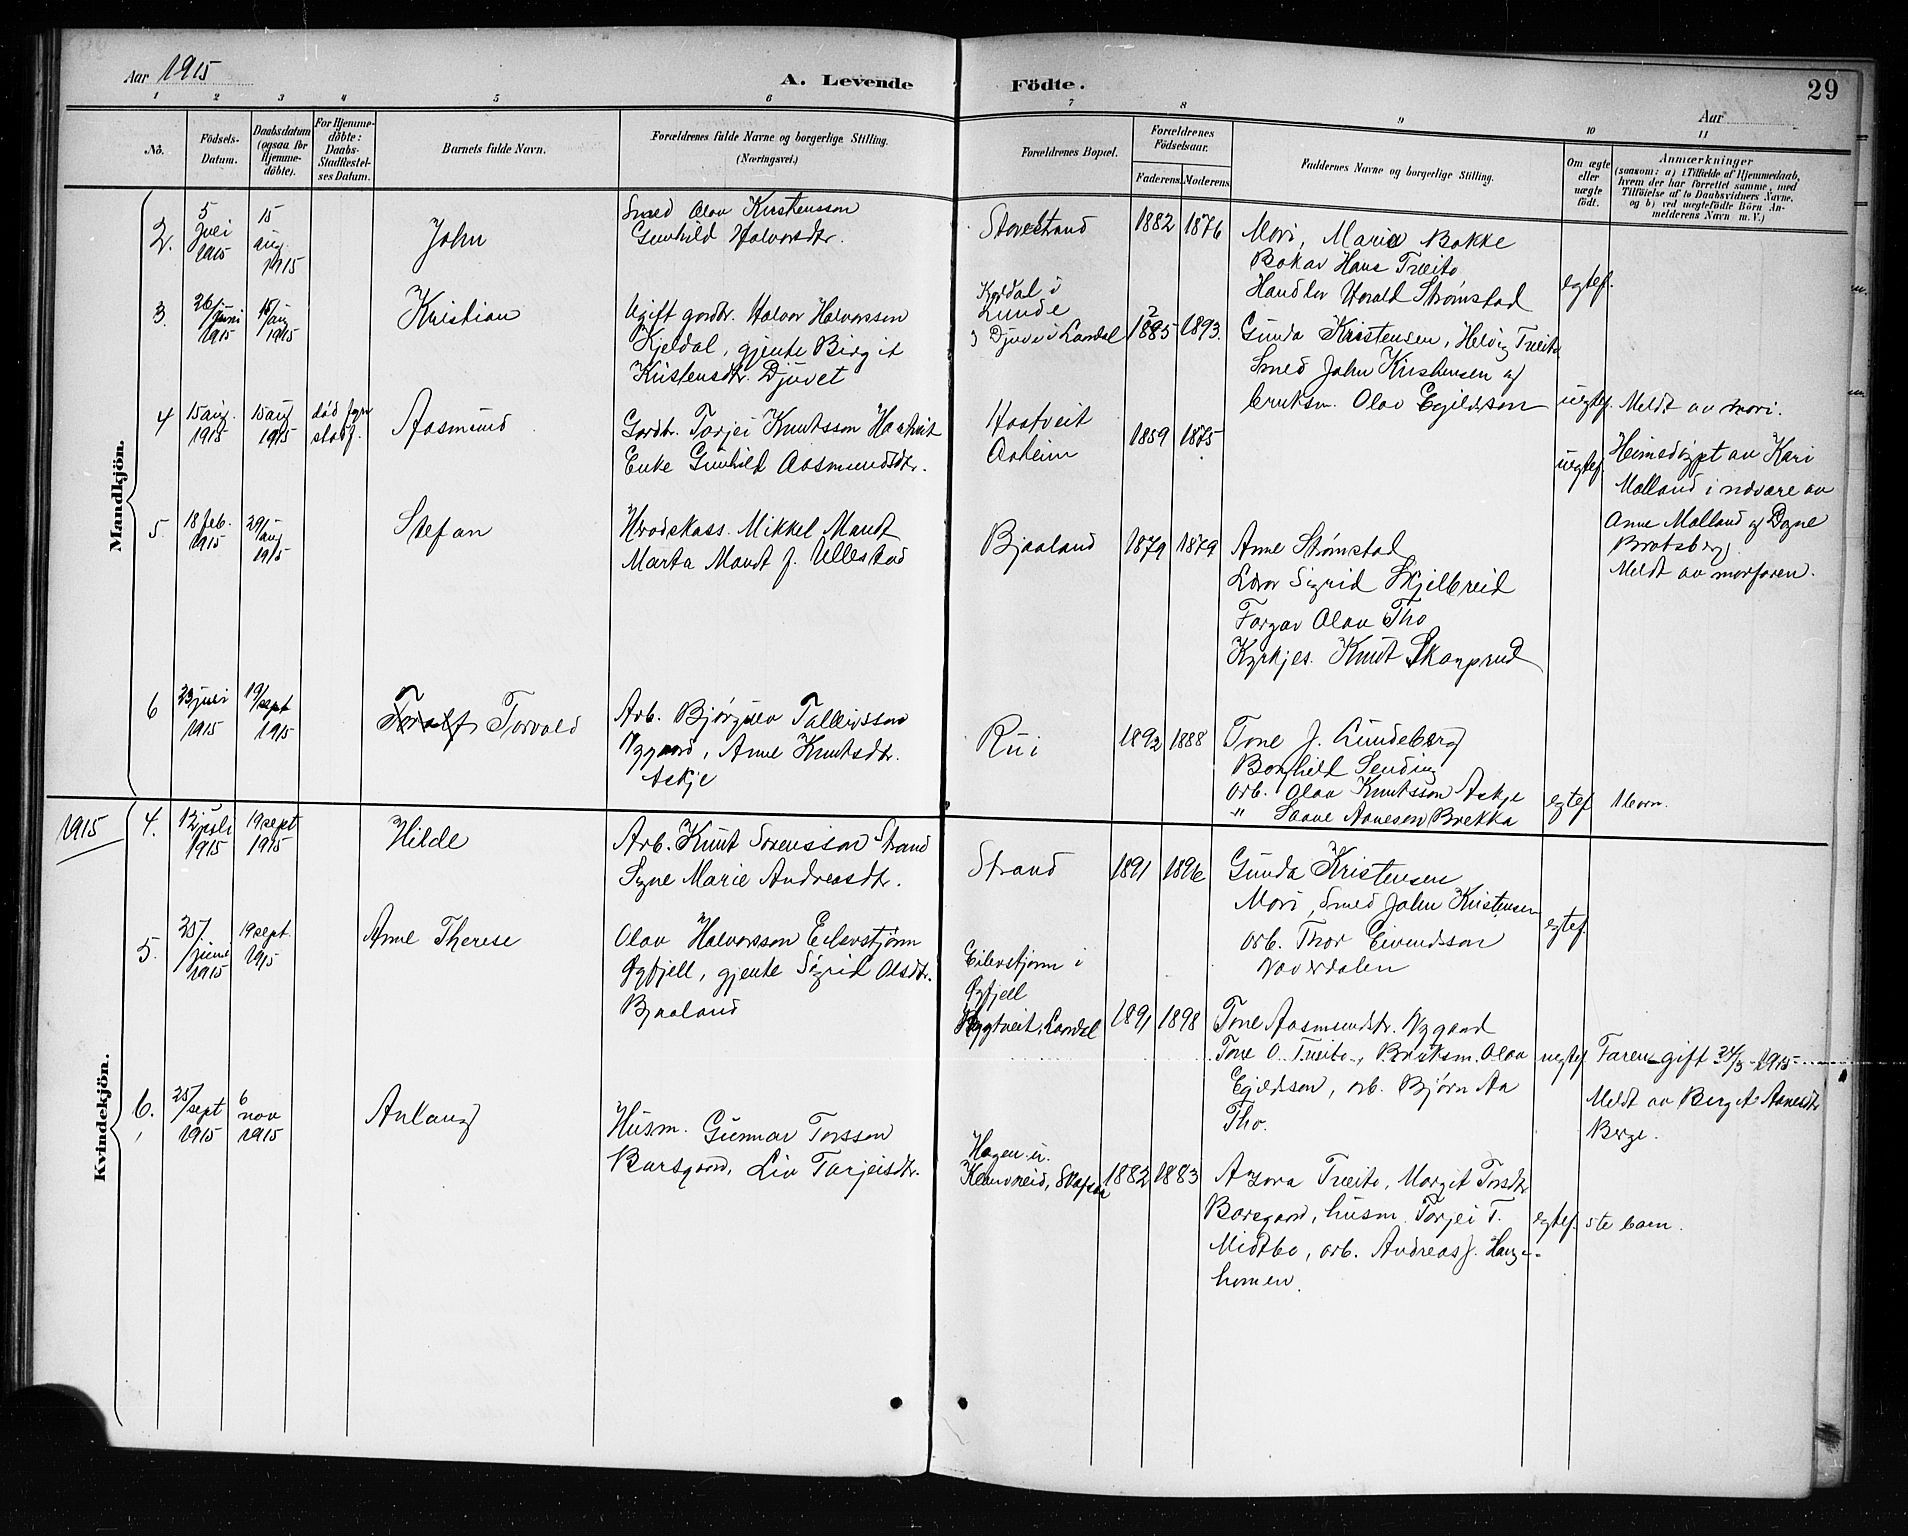 Aar 1915
A. Levende Födte.
29
Aar
1 2 3 4 5 6 7 8 9 10 11
Nô.
Födsels-
Datum.
Daabsdatum
(ogsaa for
Hjemme-
döbte).
For Hjemme-
döbte:
Daabs-
Stadfæstel-
ses Datum.
Barnets fulde Navn.
Forældrenes fulde Navne og borgerlige Stilling.
(Næringsvei.)
Forældrenes Bopæl.
Forældrenes
Födselsaar.
Faderens.
Moderens.
Faddernes Navne og borgerlige Stilling.
Om ægte
eller
uægte
födt.
Anmærkninger
(saasom: a) i Tilfælde af Hjemmedaab,
hvem der har forrettet samme, med
Tilföielse af to Daabsvidners Navne,
og b) ved uægtefödte Börn An-
melderens Navn m. V.)
Mandkjön.
2.
5
juli
1915
15
aug.
1915
John
Smed Olav Kristensson
Gunhild Halvorsdtr.
Stovestrand
1882
1876
Mori, Maria Bakke
Bakar Hans Træito
Handler Harald Strømstad
egtef.
3.
26/juni
1915
15/aug
1915
Kristian
Ugift gardbr. Halvor Halvorsson
Kjeldal, gjente Birgit
Kristensdtr. Djuvet
Kjeldal i
Lunde
Djuve i Landal
1885
1893.
Gunda Kristensen, Helvig Træito
Smed John Kristensen og
bruksm. Olav Egildson
uegtef.
Meldt av mori.
4
15 aug.
1915
15 aug
1915
død fyr
stadf.
Aasmund
Gardbr. Torjei Knutsson Haatveit
Enke Gunhild Aasmundsdtr.
Haatveit
Aaheim
1859
1875
uegtef
Heimedøypt av Kari
Malland i nævære av
Anne Malland og Dagne
Bratsberg.
Meldt av morfaren.
5.
18 feb.
1915
29/aug
1915
Stefan
Heradskass. Mikkel Mandt
Marta Mandt f. Ullestad
Bjaaland
1879
1879
Anne Strømstad
Lærar Sigrid Skjelbreid
Fargar Olav Tho
Kyrkjes. Knut Skarprud
6
23 juli
1915
19/sept
1915
Toralf Torvald
Arb. Bjørgulv Tallevsson
Nygaard, Anne Knutsdtr.
Askje
Rui
1892
1888
Tone J. Lundeberg
Borghild Sending
Arb. Olav Knutsson Askje
" Saave Aanesson Brekka
egtef
1 barn.
1915
Kvindekjön.
4.
12 juli
1915
19 sept
1915
Hilde
Arb. Knut Sørensson Strand
Signe Marie Andreasdtr.
Strand
1891
1896
Gunda Kristensen
Mori, Smed John Kristensen
arb. Thor Eivindsson
Vaaerdalen
egtef.
5.
25/juni
1915
19 sept.
1915
Anne Therese
Olav Halvorsson Eilevstjønn
Øyfjell, gjente Sigrid Olsdtr.
Bjaaland
Eilevstjønn i
Øyfjell
Nygtveit, Landal
1891
1898
Tone Aasmundsdtr. Nygaard
Tone O. Træito, Bruksm. Olav
Egildson, arb. Bjørn Aa
Tho.
uegtef
Faren gift 24/3-1915
Meldt av Bergit Aanesdtr
Berge.
6.
25/sept
1915
6
nov
1915
Anlaug
Husm. Gunnar Torsson
Barsgaard, Liv Tarjeisdtr.
Hagen u.
Kleivneid, Skafsaa
1882
1883
Azora Træito, Margit Torsdtr
Barsgaard, husm. Torjei T.
Midtbø, arb. Andreas J. Hauge-
homen.
egtef.
5te barn.